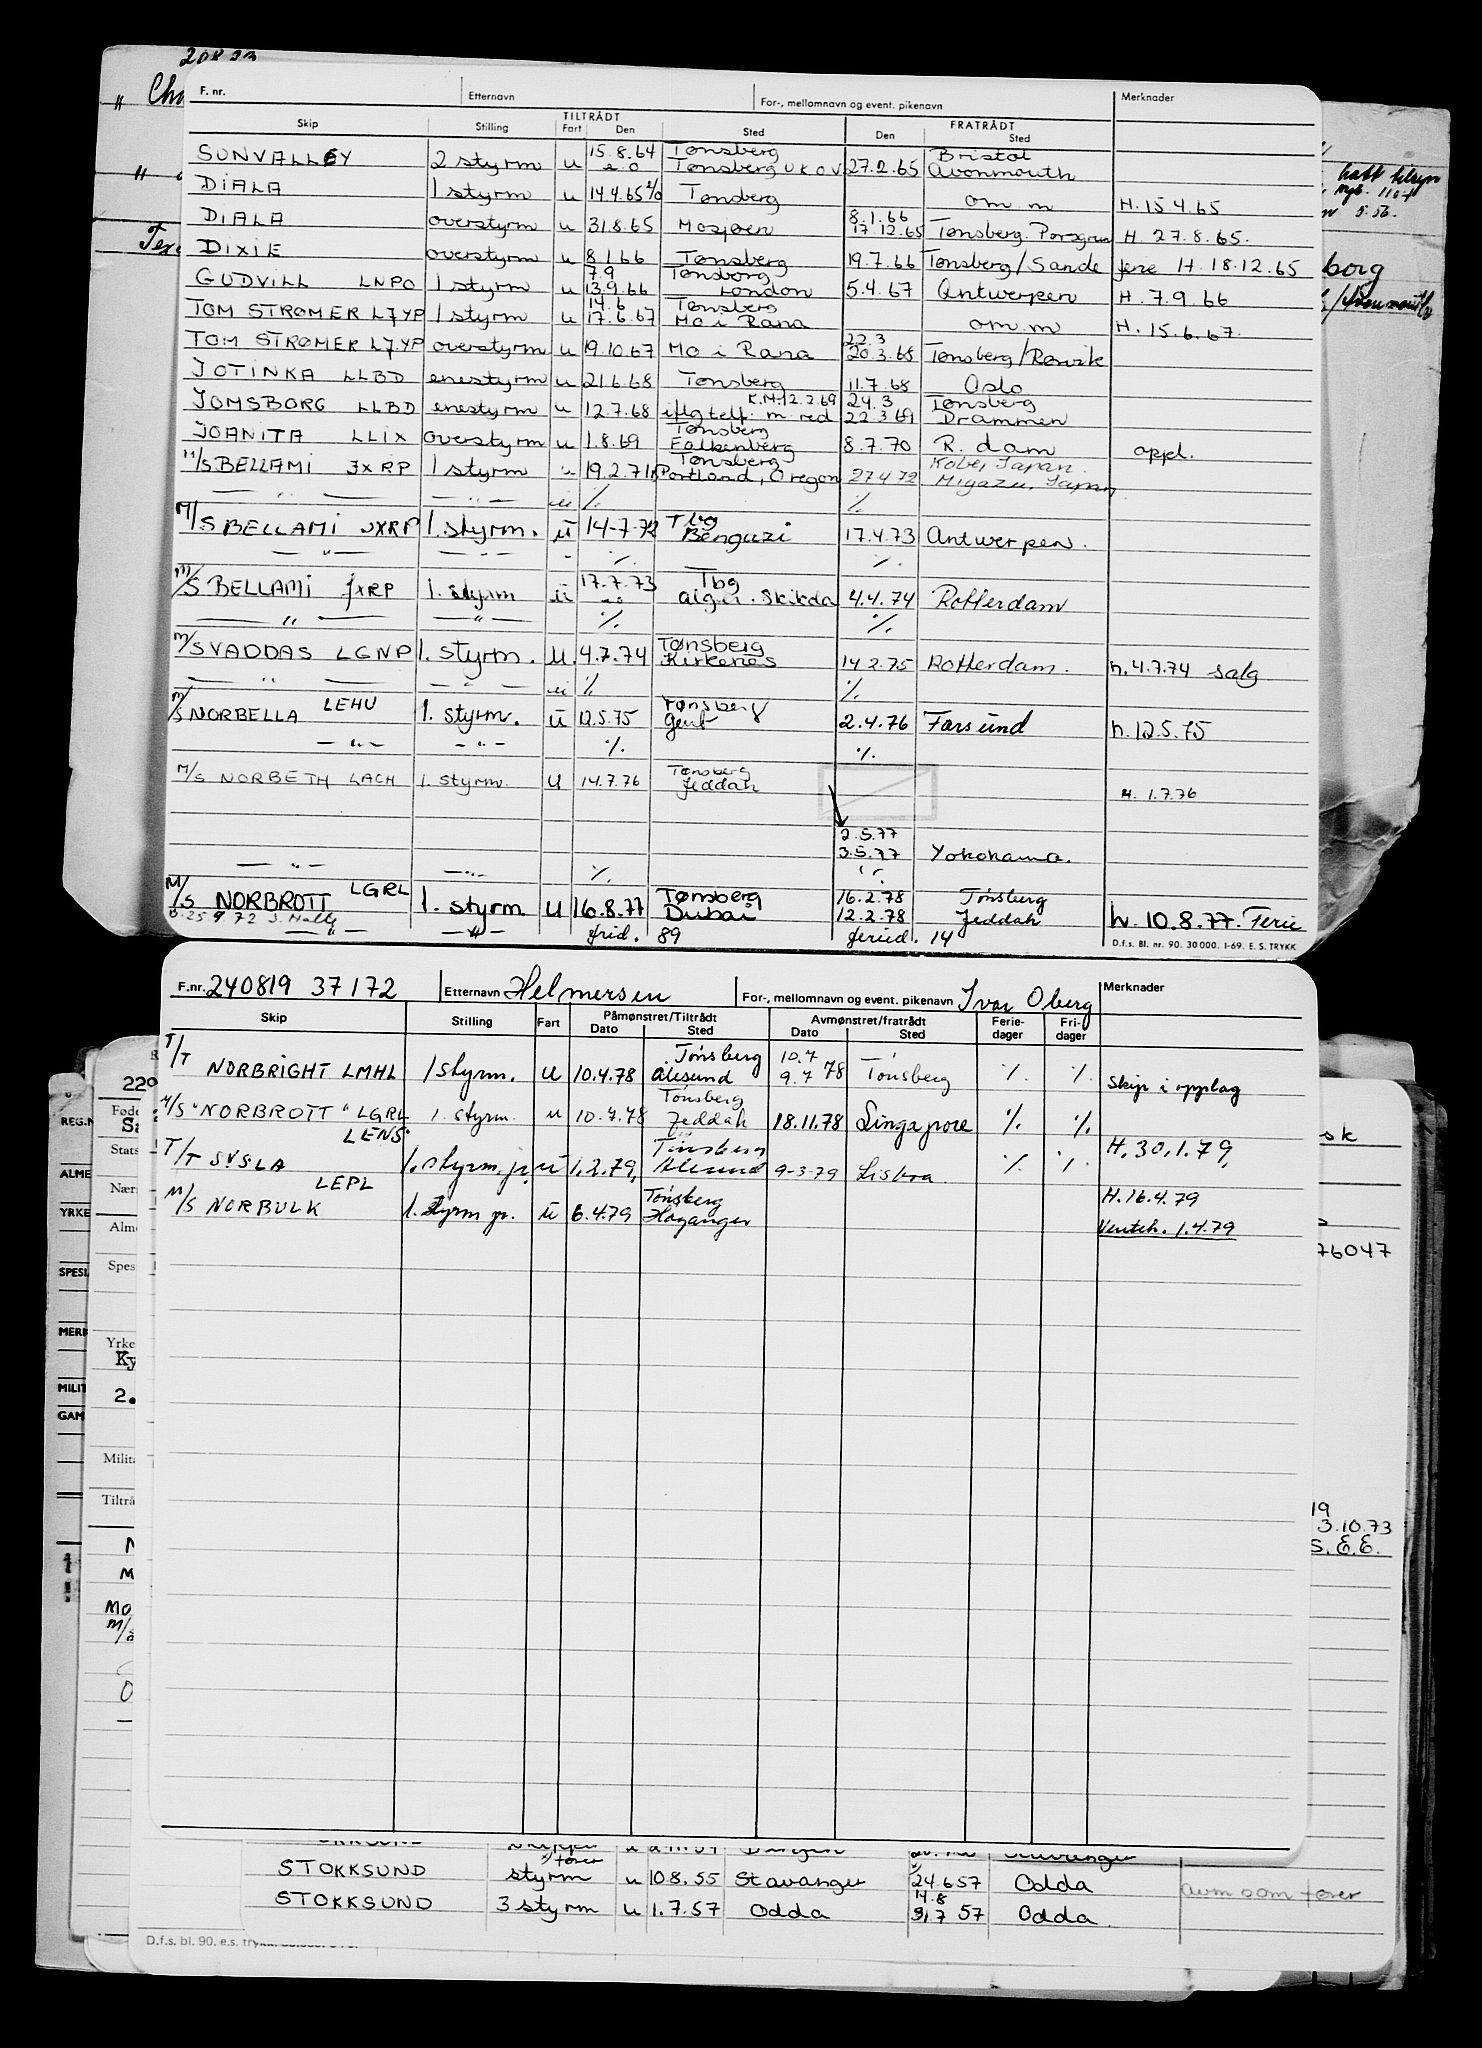 20833
F. nr. Etternavn For-, mellomnavn og event. pikenavn Merknader
TILTRÅDT FRATRÅDT
Skip Stilling Fart Den Sted Den Sted
15.8.64 Tønsberg Bristol
SUNVALLEY 2 styrm u e.o Tønsberg UKOV 27.2.65 Avonmouth
DIALA 1 styrm u 14.4.65 Tønsberg om.m H. 15.4.65
8.1.66
DIALA overstyrm u 31.8.65 Mosjøen 17.12.65 Tønsberg Porsgrun H. 27.8.65.
DIXIE overstyrm u 8.1.66 Tønsberg 19.7.66 Tønsberg/Sande ferie H. 18.12.65
7.9 Tønsberg
GUDVILL LNPO 1 styrm u 13.9.66 London 5.4.67 Antwerpen H. 7.9.66
14.6 Tønsberg
TOM STRØMER LJYP 1 styrm u 17.6.67 Mo i Rana om.m H. 15.6.67.
22.3
TOM STRØMER LJYP overstyrm u 19.10.67 Mo i Rana 20.3.68 Tønsberg/Rørvik
JOTINKA LLBD enestyrm u 21.6.68 Tønsberg 11.7.68 Oslo
K.M. 12.2.69 24.3 Tønsberg
JOMSBORG LLBD enestyrm u 12.7.68 iflg telf. m. red 22.3.69 Drammen
Tønsberg
JOANITA LLIX overstyrm u 1.8.69 Falkenberg 8.7.70 R.dam oppl.
Tønsberg Kobe, Japan
M/S BELLAMI JXRP 1 styrm u 19.2.71 Portland, Oregon 27.4.72 Migazu, Japan
— " — " — " ·/. ·/.
Tbg
M/S BELLAMI JXRP 1. styrm. u 14-7-72 Benguzi 17.4.73 Antwerpen.
— " — — " — " ·/. ·/.
17.7.73 Tbg
M/S BELLAMI JXRP 1. styrm u Alger. Skikda 4.4.74 Rotterdam
— " — — " — ·/. ·/.
Tønsberg
M/S VADDAS LGNP 1. styrm. u 4.7.74 Kirkenes 14.2.75 Rotterdam. h. 4.7.74 salg
— " — — " — " ·/. ·/.
Tønsberg
M/S NORBELLA LEHU 1. styrm. u 12.5.75 Gent 2.4.76 Farsund h. 12.5.75
— " — — " — ·/. ·/.
Tønsberg
M/S NORBETH LACH 1. styrm. u 14.7.76 Jeddah H. 1.7.76
2.5.77
3.5.77 Yokohama.
— " — — " — ·/. ·/.
LGRL Tønsberg 16.2.78 Tønsberg
M/S NORBROTT 1. styrm u 16.8.77 Dubai 12.2.78 Jeddah h. 10.8.77. Ferie
— " — — " — frid. 89 feried. 14
D.f.s. Bl. nr. 90. 30 000. 1-69. E. S. TRYKK
F.nr. 240819 37172 Etternavn Helmersen For-, mellomnavn og event. pikenavn Ivar Oberg Merknader
Påmønstret/Tiltrådt Avmønstret/fratrådt Ferie- Fri-
Skip Stilling Fart Dato Sted Dato Sted dager dager
Tønsberg 10.7
T/T NORBRIGHT LMHL 1 styrm. u 10.4.78 Ålesund 9.7 78 Tønsberg ·/. ·/. Skip i opplag
Tønsberg
M/S "NORBROTT" LGRL 1. styrm. u 10.7.78 Jeddah 18.11.78 Singapore ·/. ·/.
LENS Tønsberg
T/T SYSLA 1. styrm. jr. u 1.2.79, Ålesund 9-3-79 Lisboa ·/. ·/. H. 30.1.79,
LEPL Tønsberg H. 16.4.79
M/S NORBULK 1. styrm jr. u 6.4.79 Høyanger Venteh. 1.4.79
76047
3.10.73
S.E.E.
x) fører
STOKKSUND styrm u 10.8.55 Stavanger 24.6.57 Odda avm som fører
14.8
STOKKSUND 3 styrm u 1.7.57 Odda 9.7 57 Odda
D.f.s. bl. 90. e.s. trykk.